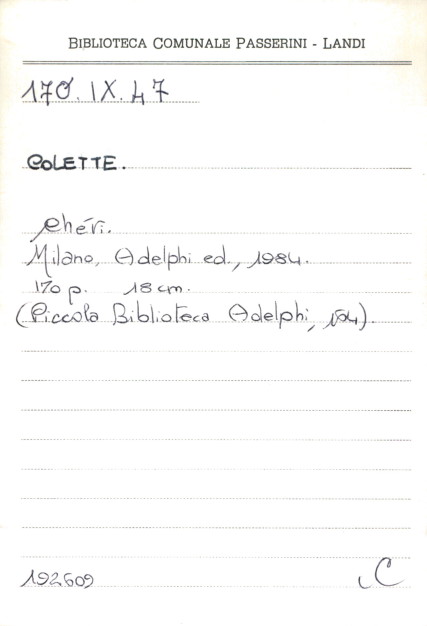 BIBLIOTECA COMUNALE PASSERINI - LANDI
170.IX.47
COLETTE.
Chéri.
Milano, Adelphi ed., 1984.
170 p. 18 cm.
(Piccola Biblioteca Adelphi, ).
192609
C